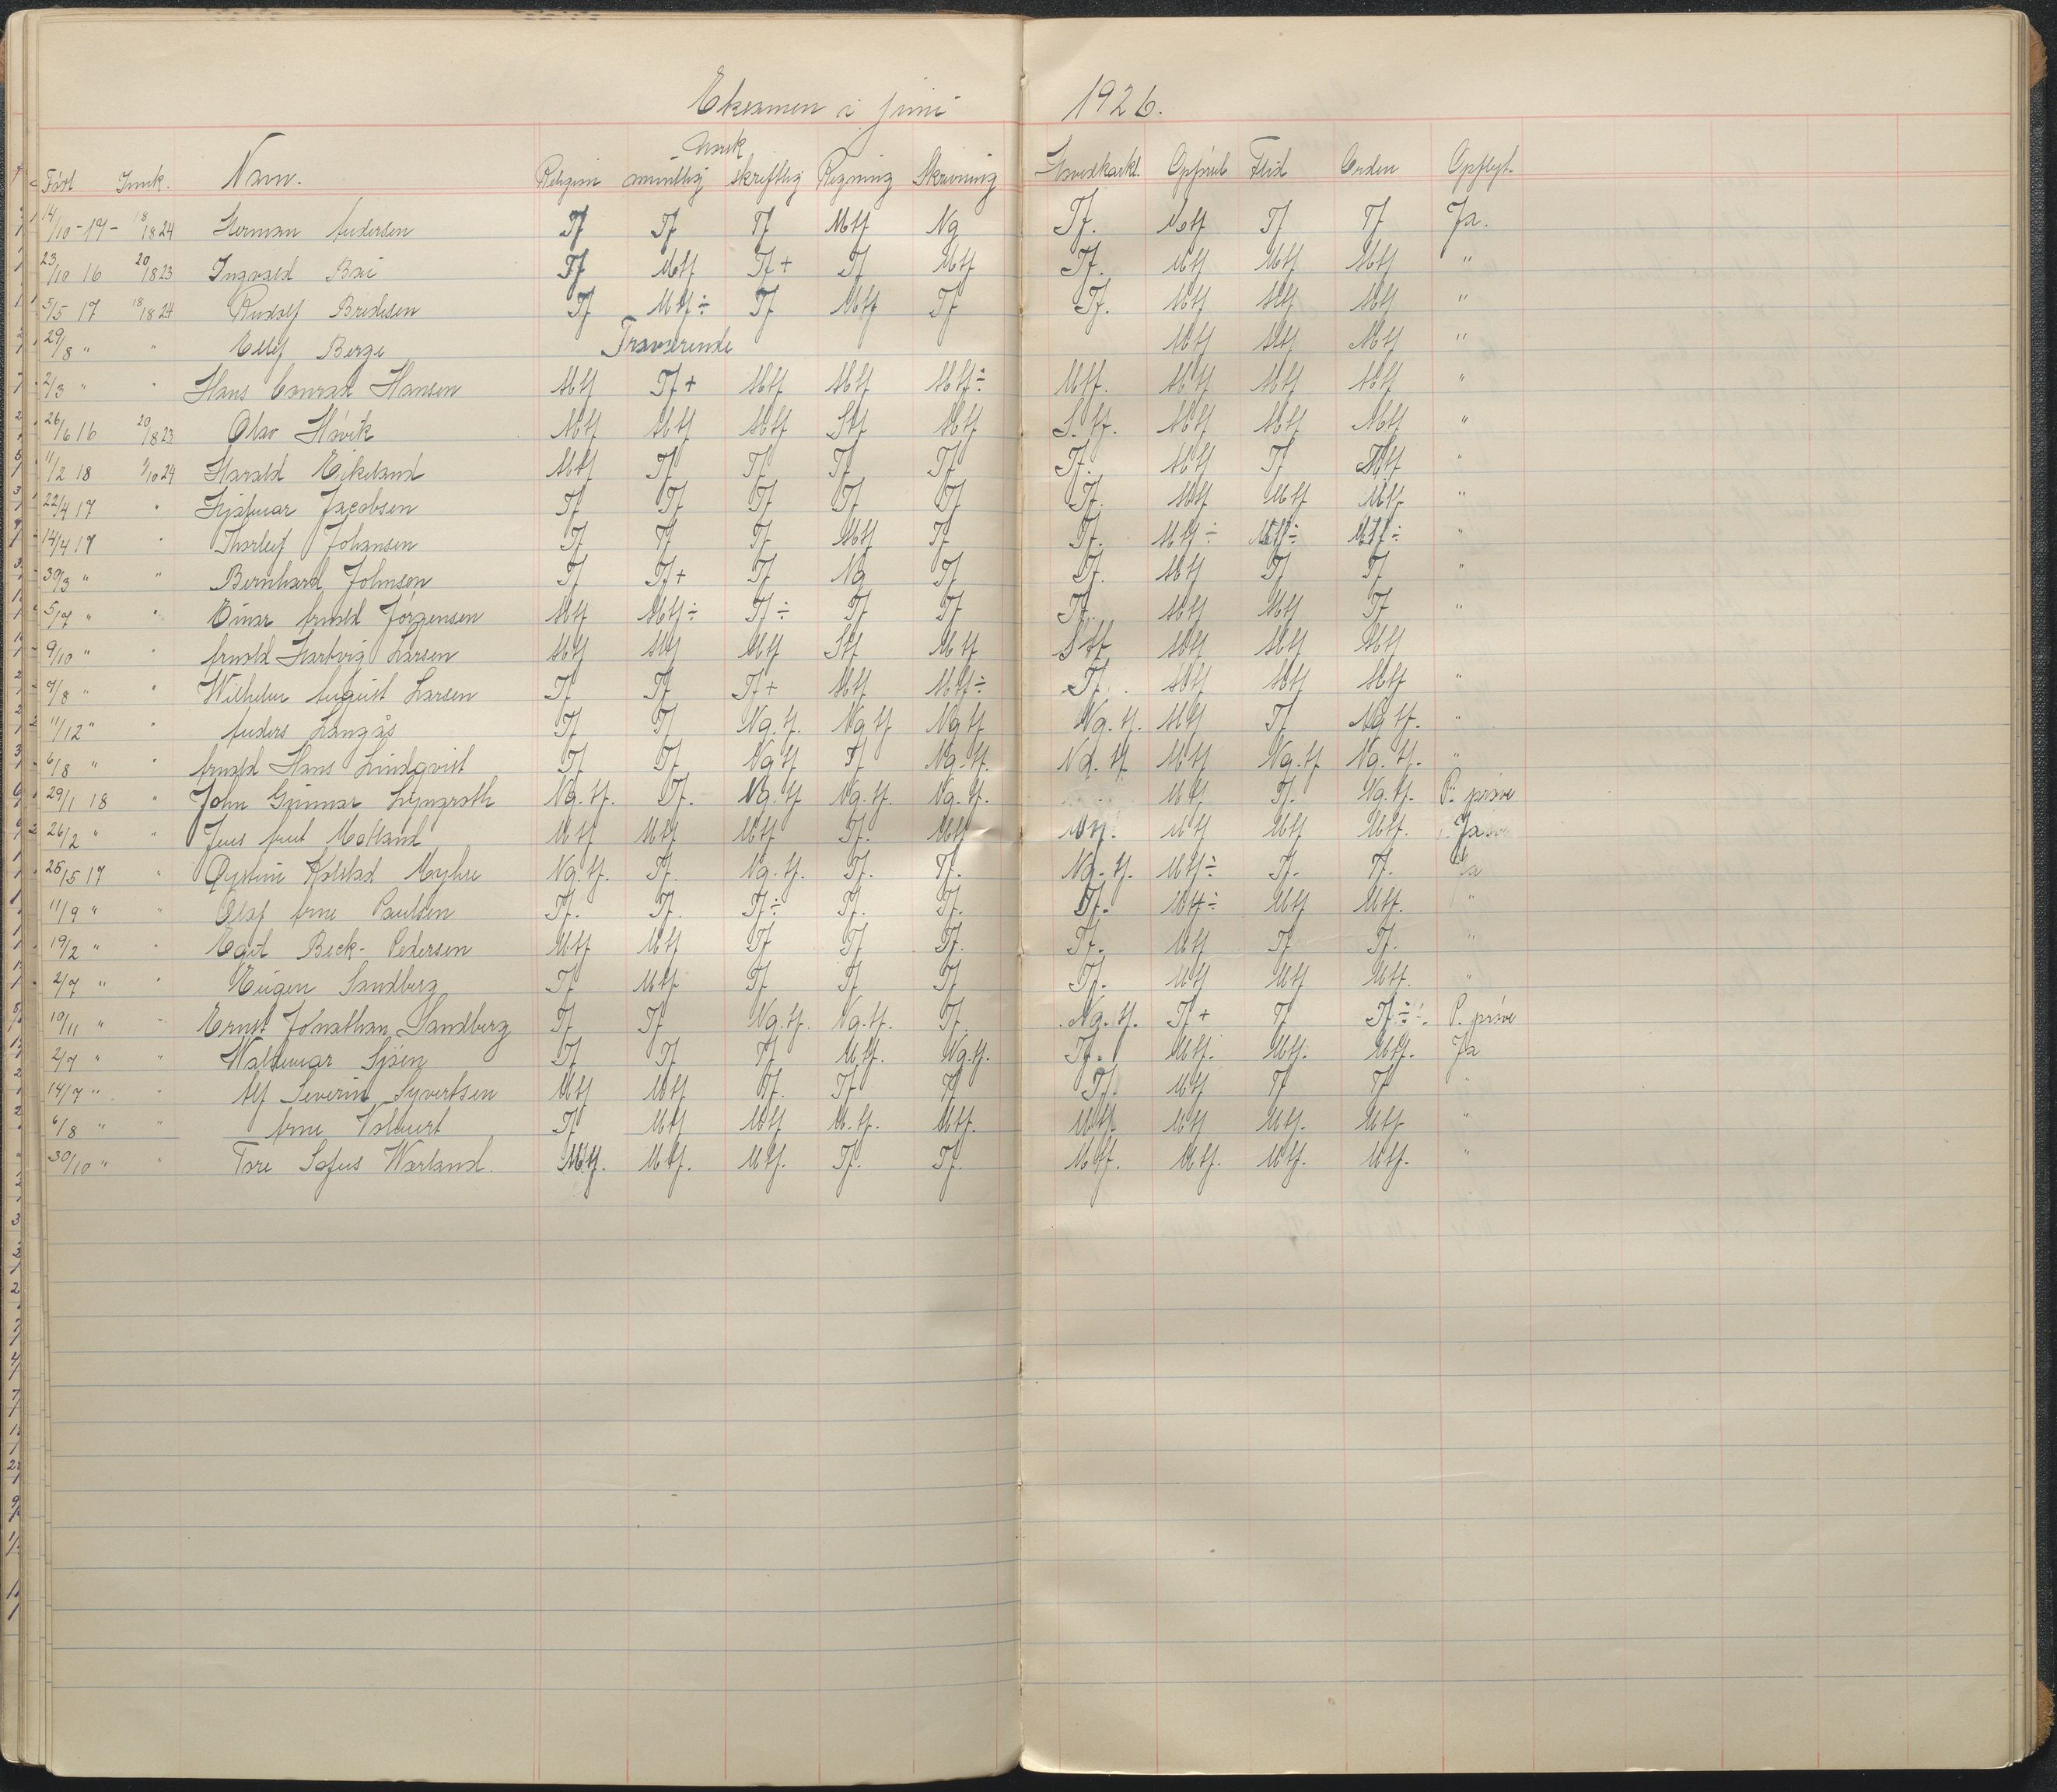 Eksamen i juni 1926.
Norsk
Født Innk. Navn. Religion muntlig skriftlig Regning Skrivning Hovedkarkt. Opførsel Flid Orden Opflyt.
14/10-17- 18/8 24 Herman Andersen Tf Tf Tf Mtf Ng Tf. Mtf Tf Tf Ja.
23/10 16 20/8 23 Ingvald Bri Tf Mtf Tf+ Tf Mtf Tf. Mtf Mtf Mtf "
5/5 17 18/8 24 Rudolf Bredesen Tf Mtf÷ Tf Mtf Tf Tf. Mtf Mtf Mtf "
29/8 " " Ellef Berge Fraværende Mtf Mtf Mtf "
2/3 " " Hans Conrad Hansen Mtf Tf+ Mtf Mtf Mtf÷ Mtf. Mtf Mtf Mtf "
26/6 16 20/8 23 Olav Håvik Mtf Mtf Mtf Stf Mtf S.tf. Mtf Mtf Mtf "
11/2 18 /10 24 Harald Eikeland Mtf Tf Tf Tf Tf Tf. Mtf Tf Mtf "
22/4 17 " Hjalmar Jacobsen Tf Tf Tf Tf Tf Tf. Mtf Mtf Mtf "
14/4 17 " Thorleif Johansen Tf Tf Tf Mtf Tf Tf. Mtf÷ Mtf÷ Mtf÷ "
30/3 " " Bernhard Johnsen Tf Tf+ Tf Ng Tf Tf. Mtf Tf Tf "
5/7 " " Einar Arnold Jørgensen Mtf Mtf÷ Tf÷ Tf Tf Tf. Mtf Mtf Tf "
9/10 " " Arnold Hartvig Larsen Mtf Mtf Mtf Stf Mtf Stf Mtf Mtf Mtf
7/8 " " Wilhelm August Larsen Tf Tf Tf+ Mtf Mtf÷ Tf. Mtf Mtf Mtf "
11/12 " " Anders Langås Tf Tf Ng.tf. Ng tf Ng tf Ng.tf. Mtf Tf Ng tf. "
6/8 " " Arnold Hans Lindqvist Tf Tf Ng tf Tf Ng.tf. Ng.tf Mtf Ng.tf Ng.tf. "
29/1 18 " John Gunnar Lyngroth Ng.tf. Tf. Ng.tf Ng.tf. Ng.tf. Mtf Tf. Ng.tf. P. prøve
26/2 " " Jens Arnt Motland Mtf Mtf Mtf Tf. Mtf Mtf. Mtf Mtf Mtf. Ja
25/5 17 " Øystein Kolstad Myhre Ng.tf. Tf. Ng.tf. Tf. Tf. Ng.tf. Mtf÷ Tf. Tf. Ja
11/9 " " Olaf Arne Paulsen Tf. Tf. Tf÷ Tf. Tf. Tf. Mtf÷ Mtf Mtf. "
19/2 " " Egil Beck-Pedersen Mtf Mtf Tf Tf Tf. Tf. Mtf Tf Tf. "
2/7 " " Eugen Sandberg Tf Mtf Tf Tf Tf Tf. Mtf Mtf Mtf. "
10/11 " " Ernst Jonathan Sandberg Tf Tf Ng.tf. Ng.tf. Tf. Ng.tf. Tf+ Tf Tf÷ P. prøve
2/7 " " Waldemar Sjøen Tf Tf Tf Mtf. Ng.tf. Tf. Mtf. Mtf. Mtf. Ja
14/7 " " Alf Severin Syvertsen Mtf Mtf Tf. Tf Tf Tf. Mtf Tf Tf "
6/8 " " Arne Volmert Tf Mtf Mtf M.tf. Mtf. Mtf. Mtf Mtf. Mtf "
30/10 " " Tore Sofus Warland. Mtf. Mtf. Mtf. Tf. Tf. Mtf. Mtf. Mtf. Mtf. "